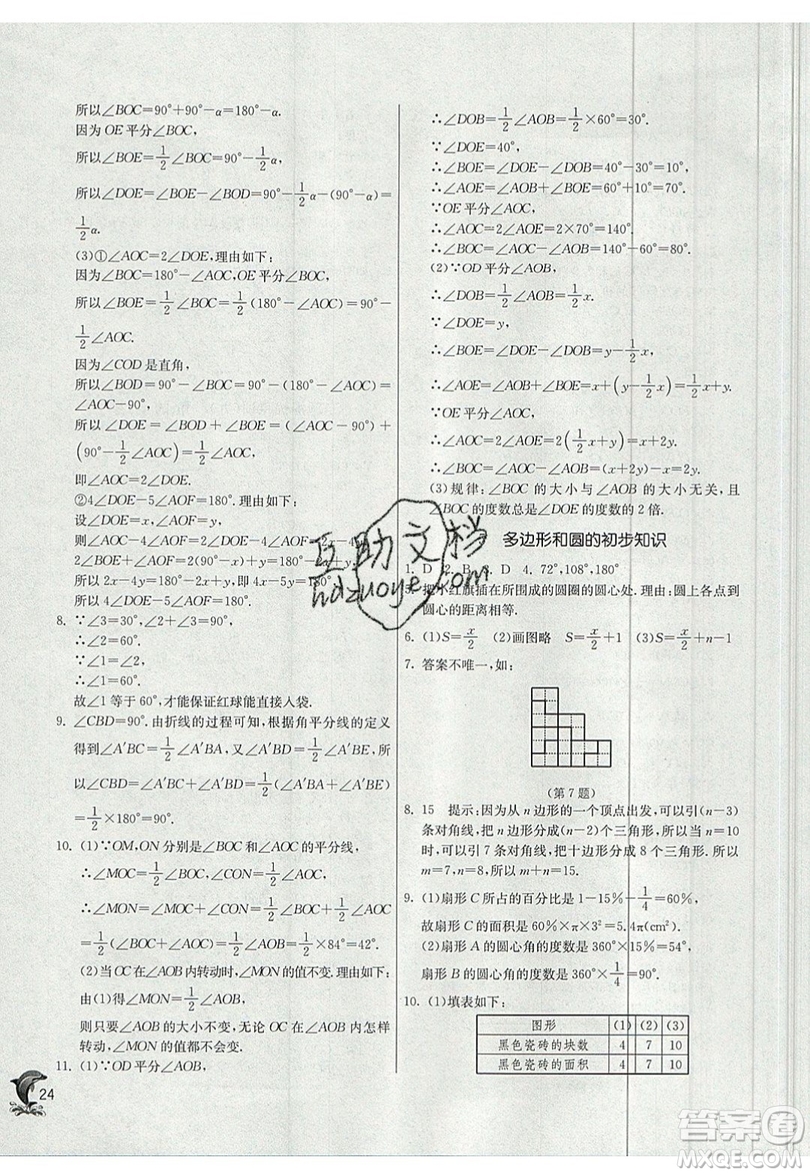 所以∠BOC=90°+90°-α=180°-α.
因为OE平分∠BOC,
所以∠BOE=1/2∠BOC=90°-1/2α.
所以∠DOE=∠BOE-∠BOD=90°-1/2α-(90°-α)=
1/2α.
(3)①∠AOC=2∠DOE,理由如下:
因为∠BOC=180°-∠AOC,OE平分∠BOC,
所以∠BOE=1/2∠BOC=1/2(180°-∠AOC)=90°-
1/2∠AOC.
因为∠COD是直角,
所以∠BOD=90°-∠BOC=90°-(180°-∠AOC)=
∠AOC-90°,
所以∠DOE=∠BOD+∠BOE=∠AOC-90°+
(90°-1/2∠AOC)=1/2∠AOC,
即∠AOC=2∠DOE.
②4∠DOE-5∠AOF=180°.理由如下:
设∠DOE=x,∠AOF=y,
则∠AOC-4∠AOF=2∠DOE-4∠AOF=2x-4y,
2∠BOE+∠AOF=2(90°-x)+y=180°-2x+y,
所以2x-4y=180°-2x+y,即4x-5y=180°,
所以4∠DOE-5∠AOF=180°.
8. ∵∠2+∠3=90°,∠3=30°,
∴∠2=60°.
∵∠1=∠2,
∴∠1=60°.
故∠1等于60°,才能保证红球能直接入袋.
9. ∠CBD=90°.由折线的过程可知,根据角平分线的定义
得到∠A′BC=1/2∠A′BA,又∠A′BD=1/2∠A′BE,所
以∠CBD=∠A′BC+∠A′BD=1/2(∠A′BA+∠A′BE)
=1/2×180°=90°.
10. (1)∵OM,ON分别是∠BOC和∠AOC的平分线,
∴∠MOC=1/2∠BOC,∠CON=1/2∠AOC,
∴∠MON=∠MOC+∠CON=1/2∠BOC+1/2∠AOC
=1/2(∠BOC+∠AOC)=1/2∠AOB=1/2×84°=42°.
(2)当OC在∠AOB内转动时,∠MON的值不变.理由如下:
由(1)得∠MON=1/2∠AOB,
则只要∠AOB的大小不变,无论OC在∠AOB内怎样
转动,∠MON的值都不会变.
11. (1)∵OD平分∠AOB,
24
∴∠DOB=1/2∠AOB=1/2×60°=30°.
∵∠DOE=40°,
∴∠BOE=∠DOE-∠DOB=40°-30°=10°,
∴∠AOE=∠AOB+∠BOE=60°+10°=70°.
∵OE平分∠AOC,
∴∠AOC=2∠AOE=2×70°=140°,
∴∠BOC=∠AOC-∠AOB=140°-60°=80°.
(2)∵OD平分∠AOB,
∴∠DOB=1/2∠AOB=1/2x.
∵∠DOE=y,
∴∠BOE=∠DOE-∠DOB=y-1/2x,
∴∠AOE=∠AOB+∠BOE=x+(y-1/2x)=1/2x+y.
∵OE平分∠AOC,
∴∠AOC=2∠AOE=2(1/2x+y)=x+2y,
∴∠BOC=∠AOC-∠AOB=(x+2y)-x=2y.
(3)规律:∠BOC的大小与∠AOB的大小无关,且
∠BOC的度数总是∠DOE的度数的2倍.
多边形和圆的初步知识
1. D 2. B 3. D 4. 72°,108°,180°
5. 把小红旗插在所围成的圆圈的圆心处.理由:圆上各点到
圆心的距离相等.
6. (1)S=x/2 (2)画图略 S=x/2+1 (3)S=x/2+n-1
7. 答案不唯一,如:
(第7题)
8. 15 提示:因为从n边形的一个顶点出发,可以引(n-3)
条对角线,把n边形分成(n-2)个三角形,所以当n=10
时,可以引7条对角线,把十边形分成8个三角形,所以
m=7,n=8,所以m+n=15.
9. (1)扇形C所占的百分比是1-15%-1/4=60%,
故扇形C的面积是60%×π×3²=5.4π(cm²).
(2)扇形A的圆心角的度数是360°×15%=54°,
扇形B的圆心角的度数是360°×1/4=90°.
10. (1)填表如下:
图形 (1) (2) (3)
黑色瓷砖的块数 4 7 10
黑色瓷砖的面积 4 7 10
互助文档
hdzuoye.com
答案卷
MXQE.COM